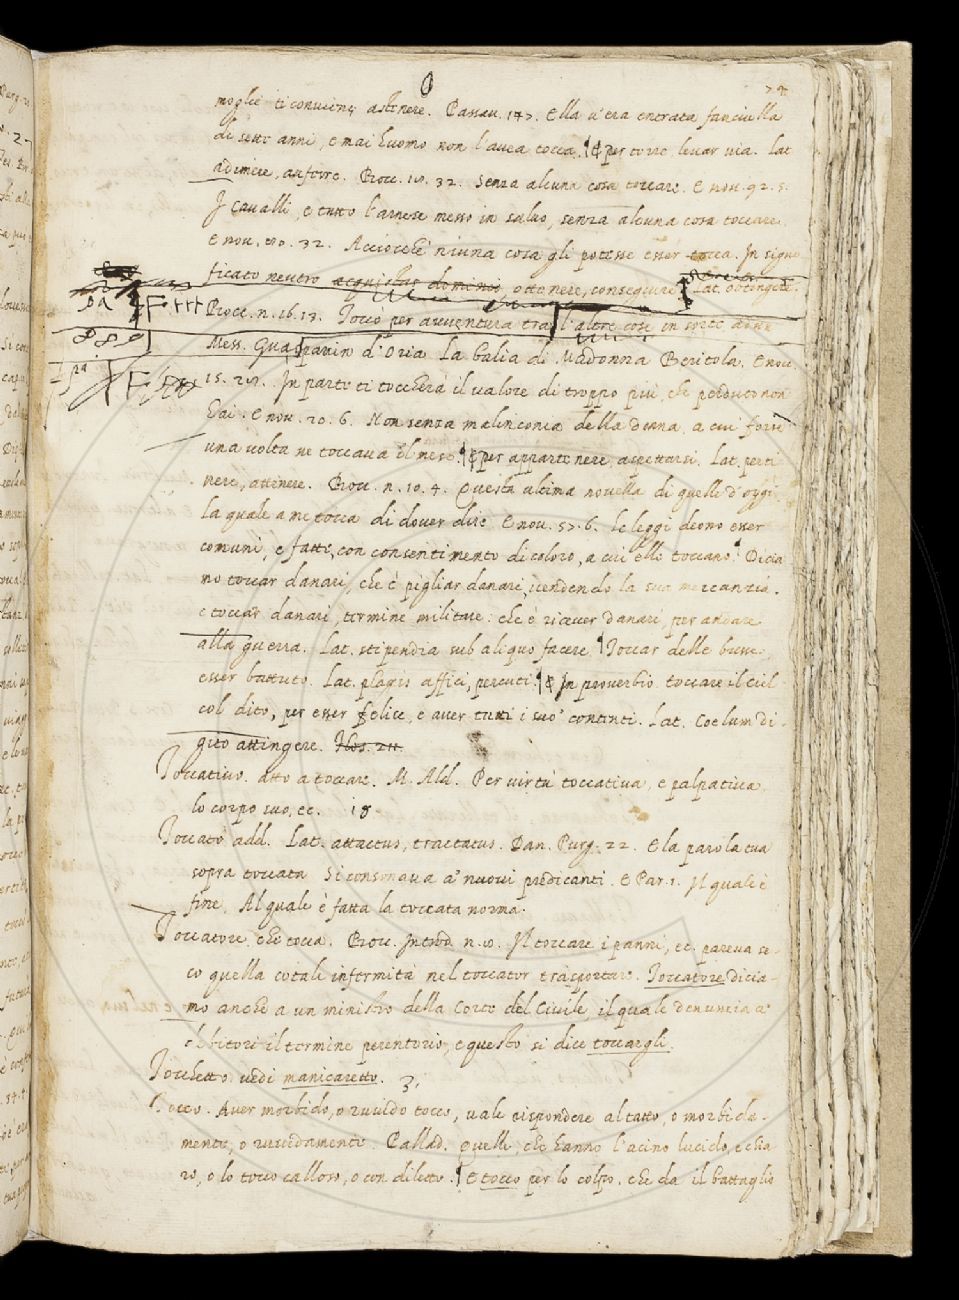 moglie ti convien, astenere. Passau. 147. Ella v'era entrata fanciulla
di sette anni, e mai huomo non l'avea tocca. & per torre levar via. Lat
adimere, auferre. Bocc. 32. Senza alcuna cosa toccare. E nov. 92. 5.
I cavalli, e tutto l'arnese messo in salvo, senza alcuna cosa toccare.
E nov. 80. 32. Acciocché niuna cosa gli potesse esser tocca. In signi
ficato neutro acquistar dominio, ottenere, conseguire. Lat. obtingere.
pa F
Bocc. n. 16. 13. Toccò per avventura tra l'altre cose in sorte
Mess. Guasparrin d'Oria la balia di Madonna Beritola. E nov.
F
15. In parte ti toccherà il valore di troppo più, che perduto non
hai. E nov. 20. 6. Non senza malinconia della donna, a cui forse
una volta ne toccava il mese. & per appartenere, aspettarsi. Lat. perti
nere, attenere. Bocc. n. 10. 4. Questa ultima novella di quelle d'oggi
la quale a me tocca di dover dire. E nov. 57. 6. le leggi deono esser
comuni, e fatte, con consentimento di coloro, a cui elle toccano. Dicia
no toccar danari, che è pigliar danari, vendendo la sua mercanzia.
e toccar danari, termine militare: che è ricever danari, per andare
alla guerra. Lat. stipendia sub aliquo facere. Toccar delle busse,
esser battuto. Lat. plagis affici, percuti. & In proverbio toccare il ciel
col dito, per esser felice, e aver tutti i suo' contenti. Lat. Coelum di-
gito attingere.
Toccativo. atto a toccare. M. Ald. Per virtù toccativa, e palpativa
lo corpo suo, ec. 18
Toccato add. Lat. attactus, tractatus. Dan. Purg. 22. E la parola tua
sopra toccata Si consonava a' nuovi predicanti. E Par. 1. Il quale è
fine, Al quale è fatta la toccata norma.
Toccatore, che tocca. Bocc. Introd. n. Il toccare i panni, ec. pareva se-
co quella cotale infermità nel toccator trasportare. Toccatore dicia-
mo anche a un ministro della Corte del Civile, il quale denunzia a'
debitori il termine perentorio, e questo si dice toccargli.
Tocchetto vedi manicaretto. 3.
Tocco. Aver morbido, o ruvido tocco, vale rispondere al tatto, o morbida-
mente, o ruvidamente. Pallad. Quelli, che hanno l'acino lucido, e chia
ro, o lo tocco calloso, o con diletto. E tocco per lo colpo, che da il battaglio